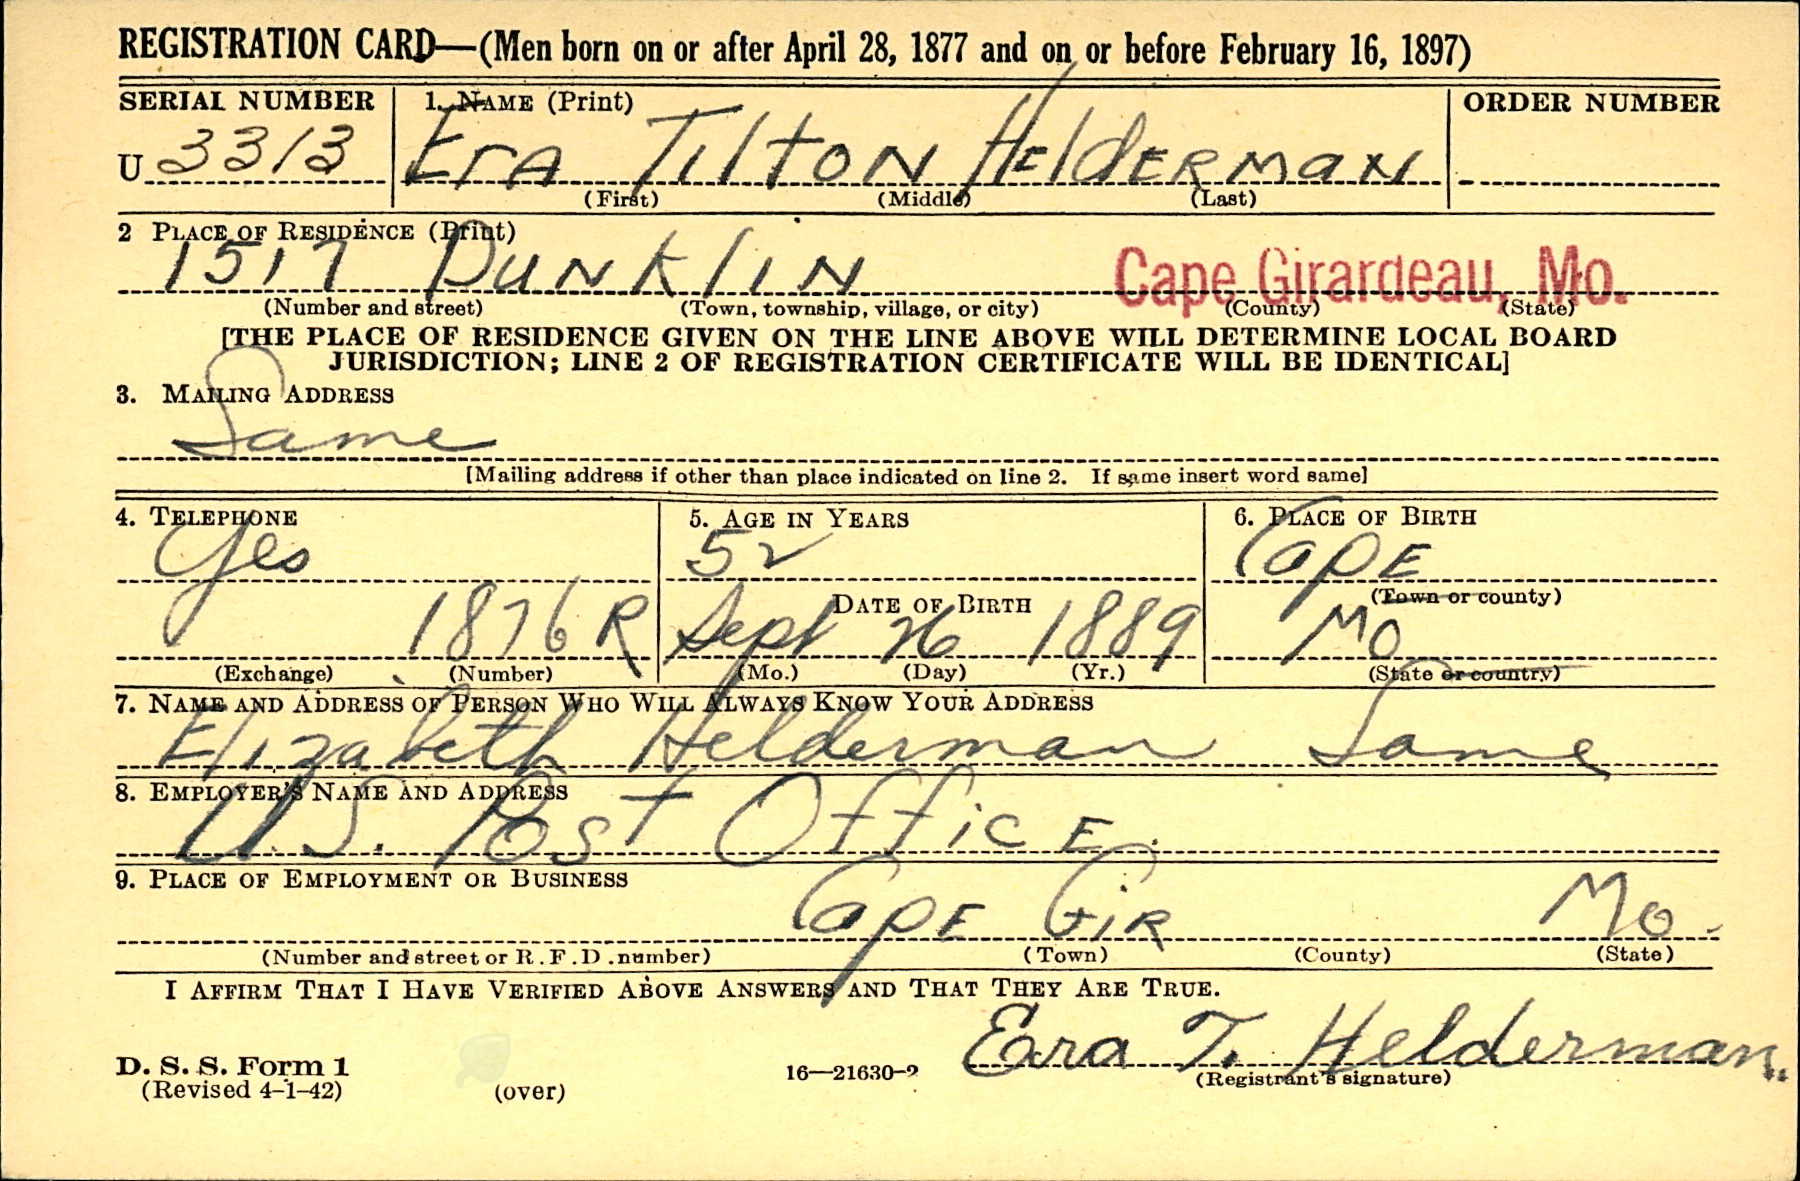 REGISTRATION CARD—(Men born on or after April 28, 1877 and on or before February 16, 1897)
SERIAL NUMBER 1. NAME (Print) ORDER NUMBER
U 3313 Era Tilton Helderman
(First) (Middle) (Last)
2 PLACE OF RESIDENCE (Print)
1517 Dunklin Cape Girardeau, Mo.
(Number and street) (Town, township, village, or city) (County) (State)
[THE PLACE OF RESIDENCE GIVEN ON THE LINE ABOVE WILL DETERMINE LOCAL BOARD
JURISDICTION; LINE 2 OF REGISTRATION CERTIFICATE WILL BE IDENTICAL]
3. MAILING ADDRESS
Same
[Mailing address if other than place indicated on line 2. If same insert word same]
4. TELEPHONE 5. AGE IN YEARS 6. PLACE OF BIRTH
Yes 52 Cape
DATE OF BIRTH (Town or county)
1876 R Sept 26 1889 Mo
(Exchange) (Number) (Mo.) (Day) (Yr.) (State or country)
7. NAME AND ADDRESS OF PERSON WHO WILL ALWAYS KNOW YOUR ADDRESS
Elizabeth Helderman Same
8. EMPLOYER'S NAME AND ADDRESS
U.S. Post Office.
9. PLACE OF EMPLOYMENT OR BUSINESS
Cape Gir Mo.
(Number and street or R.F.D. number) (Town) (County) (State)
I AFFIRM THAT I HAVE VERIFIED ABOVE ANSWERS AND THAT THEY ARE TRUE.
Era T. Helderman.
D. S. S. Form 1 16—21630-2 (Registrant's signature)
(Revised 4-1-42) (over)